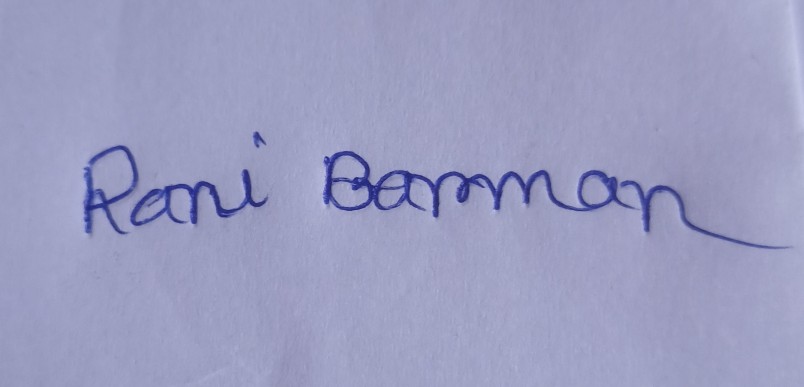 Rani Barman